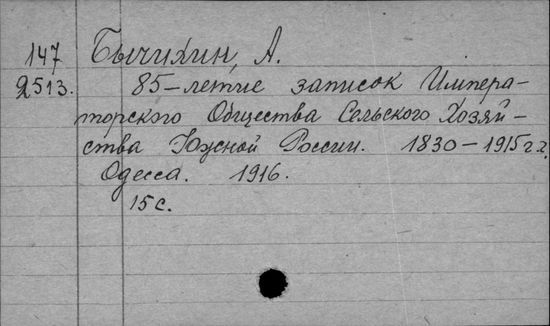 147 Бычихин, А.
2513. 85-летие записок Импера-
торского Общества Сельского Хозяй-
ства Южной России. 1830-1915 г.г.
Одесса. 1916.
15 с.